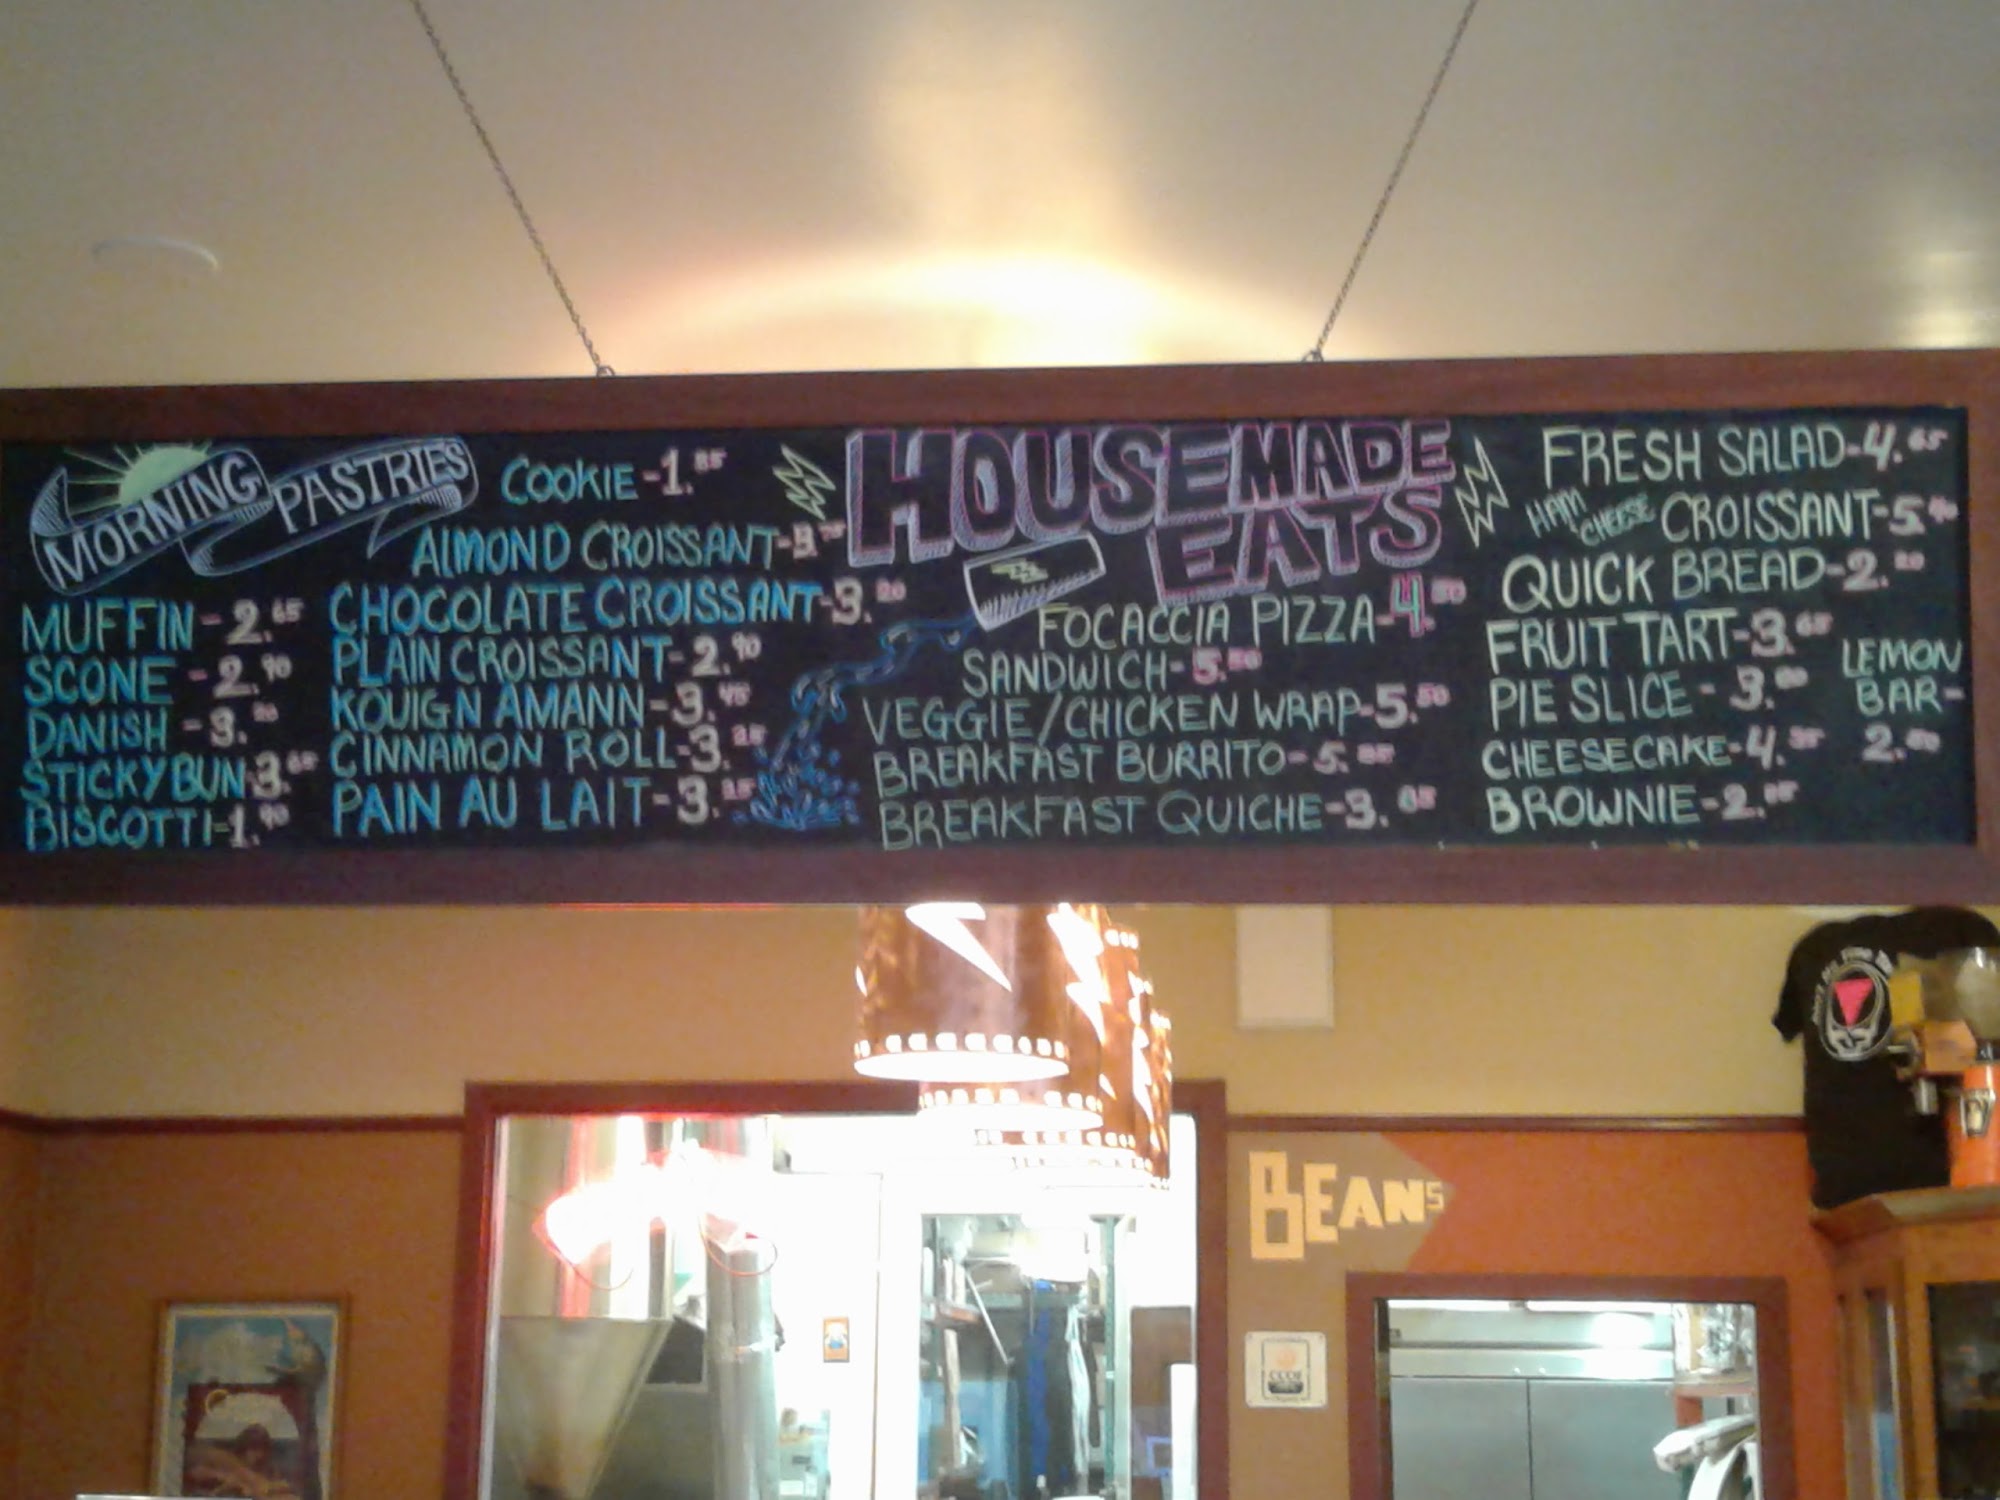 MORNING PASTRIES
MUFFIN - 2.65
SCONE - 2.90
DANISH - 3.20
STICKY BUN - 3.65
BISCOTTI - 1.90
COOKIE - 1.85
ALMOND CROISSANT - 3.70
CHOCOLATE CROISSANT - 3.20
PLAIN CROISSANT - 2.90
KOUIGN AMANN - 3.45
CINNAMON ROLL - 3.25
PAIN AU LAIT - 3.25
HOUSEMADE
EATS
FOCACCIA PIZZA - 4.50
SANDWICH - 5.50
VEGGIE/CHICKEN WRAP - 5.50
BREAKFAST BURRITO - 5.85
BREAKFAST QUICHE - 3.85
FRESH SALAD - 4.65
HAM & CHEESE CROISSANT - 5.40
QUICK BREAD - 2.20
FRUIT TART - 3.65
PIE SLICE - 3.80
CHEESECAKE - 4.35
BROWNIE - 2.85
LEMON
BAR -
2.80
BEANS
CCOF